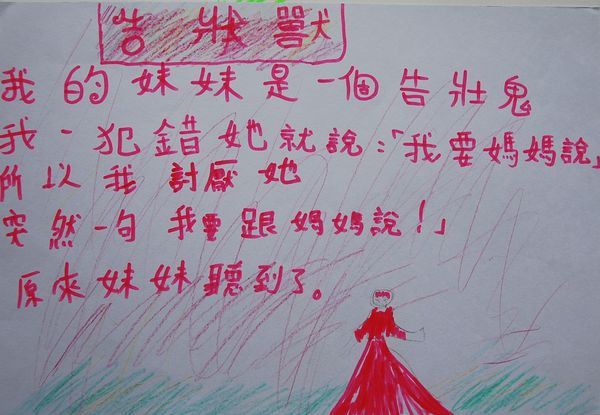 告狀獸
我的妹妹是一個告壯鬼
我一犯錯她就說:「我要媽媽說」
所以我討厭她
突然一句我要跟媽媽說!」
原來妹妹聽到了。